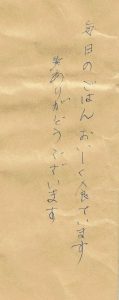 毎日のごはんおいしく食でいます
ありがとうございます